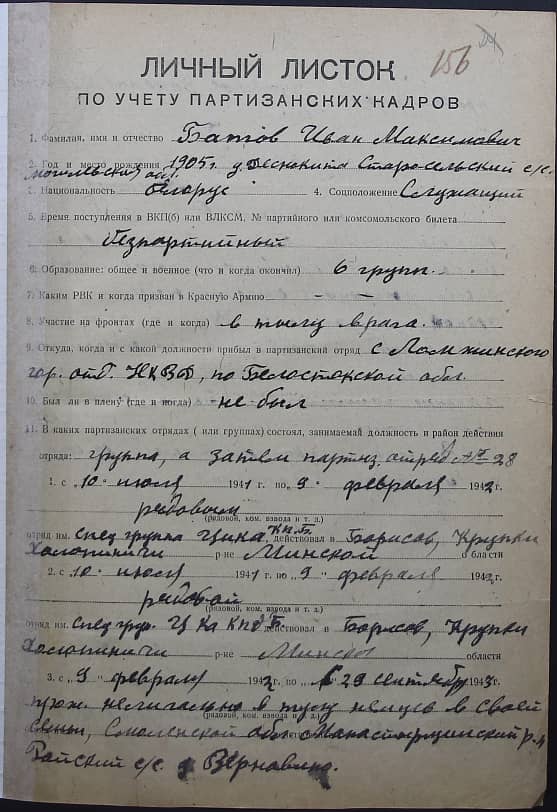 156
ЛИЧНЫЙ ЛИСТОК
ПО УЧЕТУ ПАРТИЗАНСКИХ КАДРОВ
1. Фамилия, имя и отчество Батов Иван Максимович
2. Год и место рождения 1905 г. д. Старосельский с/с.
Могилевской обл.
3. Национальность белорус 4. Соцположение Служащий
5. Время поступления в ВКП(б) или ВЛКСМ, № партийного или комсомольского билета
безпартийный
6. Образование: общее и военное (что и когда окончил) 6 групп.
7. Каким РВК и когда призван в Красную Армию – –
8. Участие на фронтах (где и когда) в тылу врага.
9. Откуда, когда и с какой должности прибыл в партизанский отряд с Ломжинского
гор. отд. НКВД, по Белостокской обл.
10. Был ли в плену (где и когда) не был
11. В каких партизанских отрядах ( или группах) состоял, занимаемая должность и район действия
отряда: группа, а затем партиз. отряд № 28
1. с „10 " июля 1941 г. по „9 " февраля 1942 г.
рядовым
(рядовой, ком. взвода и т. д.)
отряд им. Спец группа ЦК КП.б. действовал в Борисов, Крупки
Холопиничи р-не Минской области
2. с „10 " июля 1941 г. по „9 " февраля 1942 г.
рядовой
(рядовой, ком. взвода и т. д.)
отряд им. Спец груп. Ц Ка КПб действовал в Борисов, Крупки
Холопиничи р-не Минской области
3. с „9 " февраля 1942 г. по „ 29 сентября 1943 г.
прож. нелегально в тылу немцев в своей
(рядовой, ком. взвода и т. д.)
семьи, Смоленской обл. Монастырщинский р-н
с/с. д.